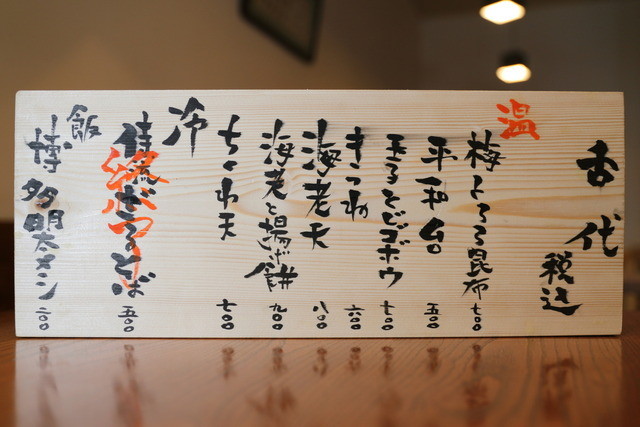 古代
税込
温
梅とろろ昆布 七〇〇
平和台 五〇〇
玉子とじゴボウ 七〇〇
きつね 六〇〇
海老天 八〇〇
海老と揚げ餅 九〇〇
ちくわ天 七〇〇
冷
ざるそば 五〇〇
終了
飯
博多明太メシ 二〇〇